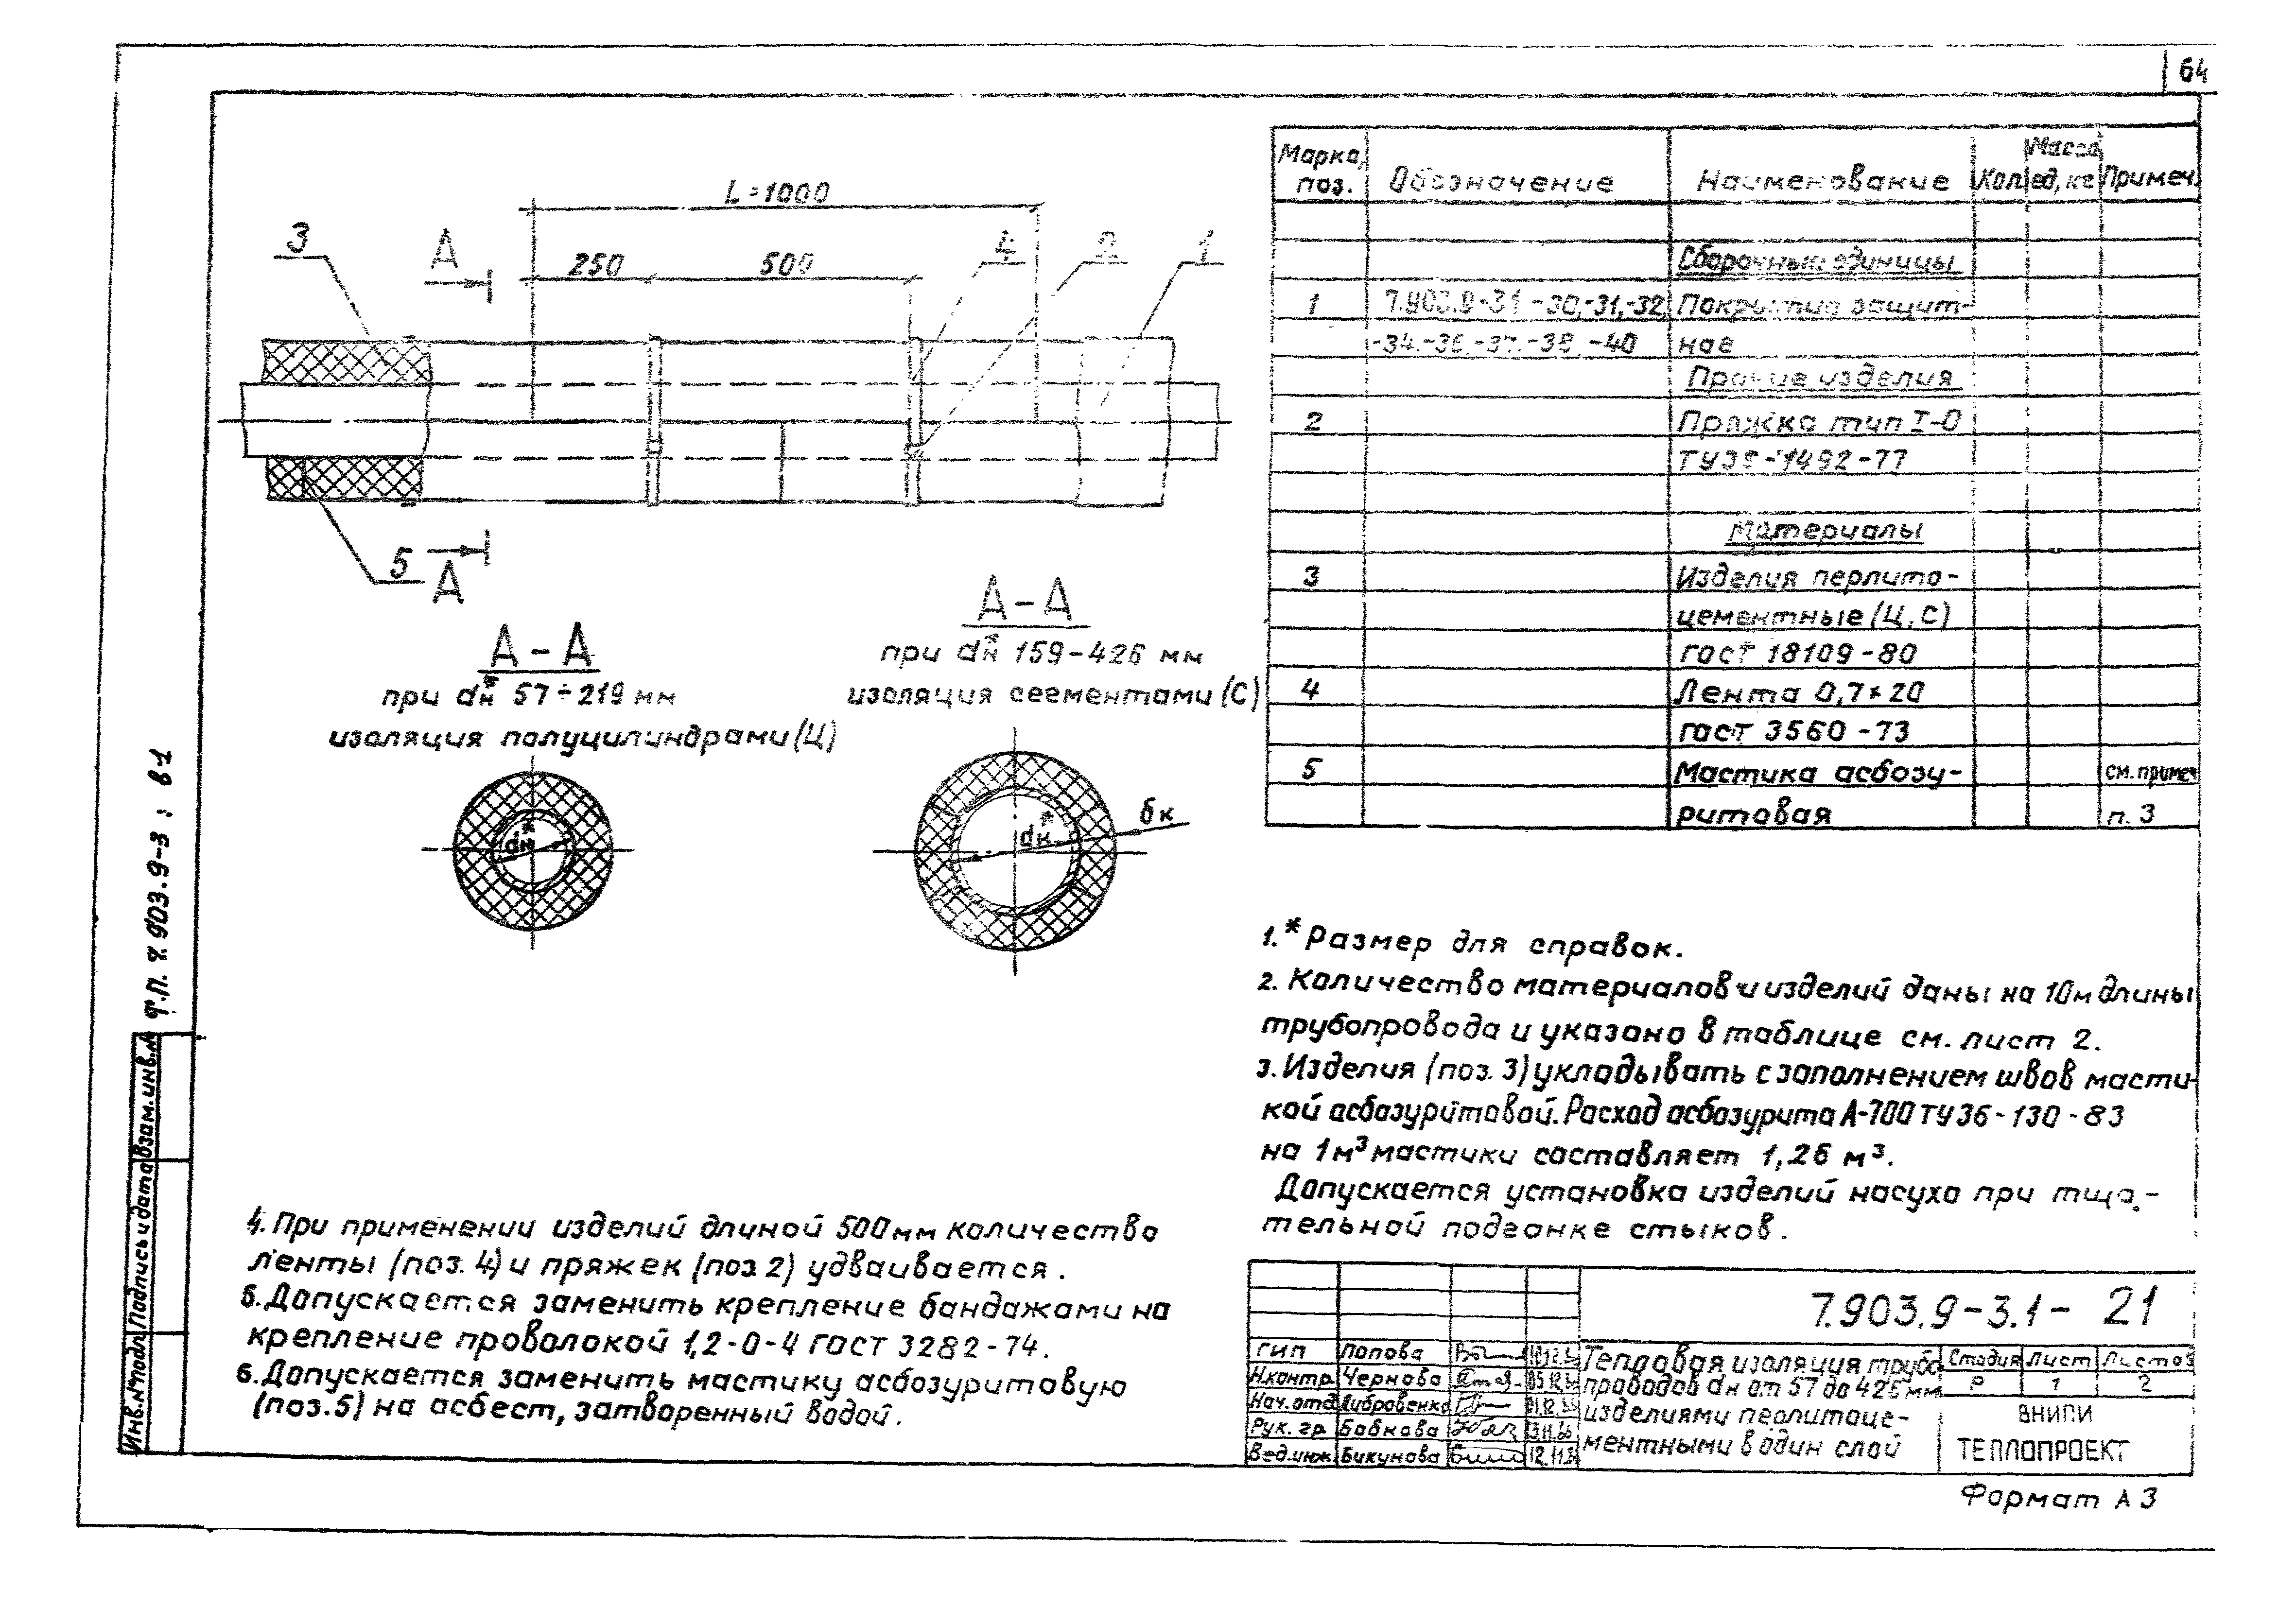 64
L=1000
250
500
3
А
4
2
1
5
А
А-А
при dн* 57÷219 мм
изоляция полуцилиндрами (Ц)
dн*
А-А
при dн* 159-426 мм
изоляция сегментами (С)
dн*
δк
Марка, поз.
Обозначение
Наименование
Кол.
Масса ед, кг
Примеч.
Сборочные единицы
1
7.903.9-3.1 -30,-31,-32,
Покрытие защит-
-34,-36,-37,-38,-40
ное
Прочие изделия
2
Пряжка тип I-О
ТУ36-1492-77
Материалы
3
Изделия перлито-
цементные (Ц, С)
ГОСТ 18109-80
4
Лента 0,7×20
ГОСТ 3560-73
5
Мастика асбозу-
см. примеч
ритовая
п. 3
1.* Размер для справок.
2. Количество материалов и изделий даны на 10м длины
трубопровода и указано в таблице см. лист 2.
3. Изделия (поз. 3) укладывать с заполнением швов масти-
кой асбозуритовой. Расход асбозурита А-700 ТУ36-130-83
на 1м³ мастики составляет 1,26 м³.
Допускается установка изделий насухо при тща-
тельной подгонке стыков.
4. При применении изделий длиной 500мм количество
ленты (поз. 4) и пряжек (поз. 2) удваивается.
5. Допускается заменить крепление бандажами на
крепление проволокой 1,2-0-4 ГОСТ 3282-74.
6. Допускается заменить мастику асбозуритовую
(поз. 5) на асбест, затворенный водой.
Т.П. 7.903.9-3 ; в1
Взам. инв. №
Подпись и дата
Инв. № подл.
7.903.9-3.1- 21
ГИП Попова
Н.контр. Чернова
Нач. отд.
Рук. гр. Бобкова
Вед. инж. Бикунова
Тепловая изоляция трубо
проводов dн от 57 до 426 мм
изделиями перлитоце-
ментными в один слой
Стадия Лист Листов
Р 1 2
ВНИПИ
ТЕПЛОПРОЕКТ
Формат А3